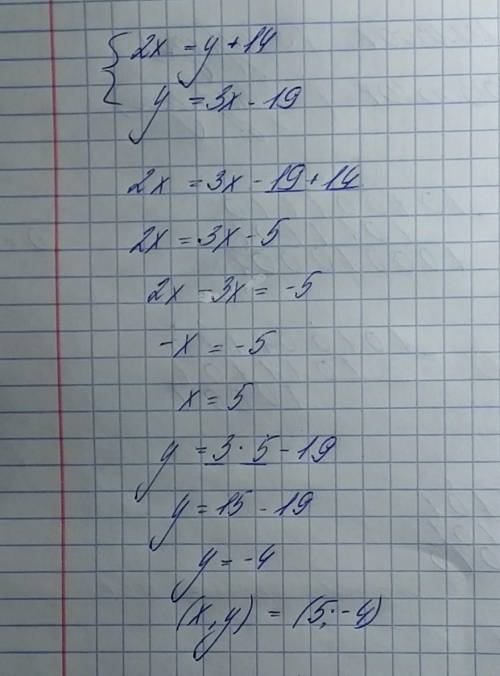 { 2x = y + 14
y = 3x - 19
2x = 3x - 19 + 14
2x = 3x - 5
2x - 3x = -5
-x = -5
x = 5
y = 3 · 5 - 19
y = 15 - 19
y = -4
(x, y) = (5; -4)